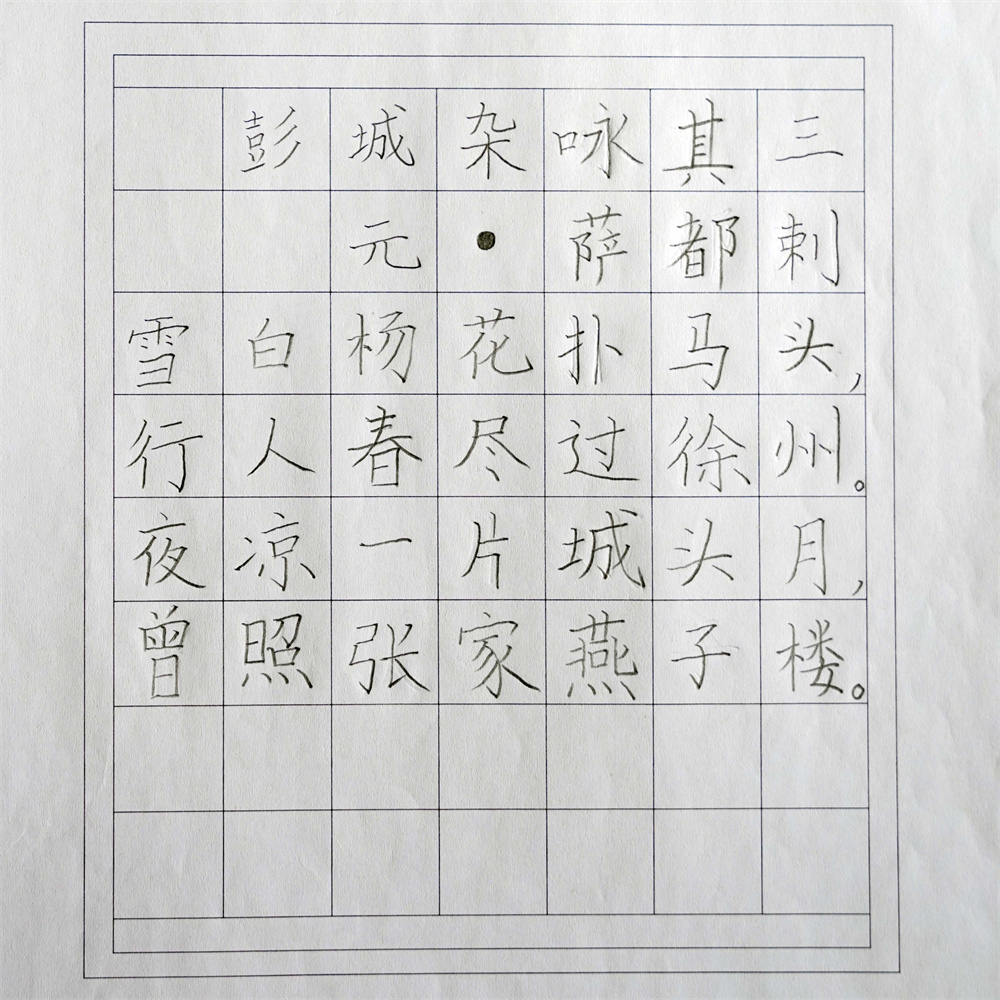 彭城杂咏其三
元·萨都剌
雪白杨花扑马头,
行人春尽过徐州。
夜凉一片城头月,
曾照张家燕子楼。